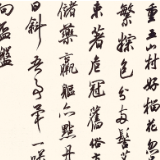 重五山村好榴花忽
繁粽包分兩髻艾
束著危冠舊俗方
儲藥羸軀亦點丹
日斜吾事畢一笑
向杯盤